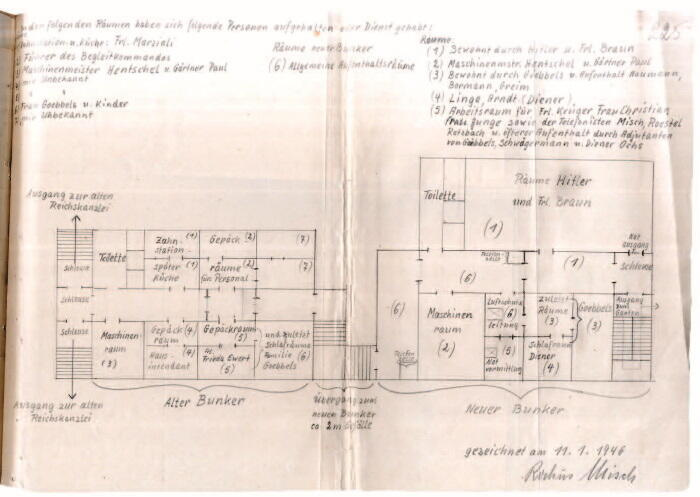 In den folgenden Räumen haben sich folgende Personen aufgehalten oder Dienst gehabt:
225
Zahnstation u. Küche: Frl. Marziali
Führer des Begleitkommandos
Maschinenmeister Hentschel u. Gärtner Paul
mir Unbekannt
"
Frau Goebbels u. Kinder
mir Unbekannt
Räume neuer Bunker
(6) Allgemeine Aufenthaltsräume
Räume:
(1) Bewohnt durch Hitler u. Frl. Braun
(2) Maschinenmstr. Hentschel u. Gärtner Paul
(3) Bewohnt durch Goebbels u. Aufenthalt Naumann,
Bormann, Greim
(4) Linge, Arndt (Diener)
(5) Arbeitsraum für Frl. Krüger Frau Christian,
Frau Junge sowie der Telefonisten Misch,
Retzbach u. öfterer Aufenthalt durch Adjutanten
von Goebbels, Schwägermann u. Diener Ochs
Ausgang zur alten
Reichskanzlei
Schleuse
Schleuse
Schleuse
Toilette
Zahn-
station-
(1)
Gepäck
(2)
(7)
später
Küche
(1)
räume
für Personal
(2)
(7)
Maschinen-
raum
(3)
Gepäck
raum
(4)
Haus-
intendant
(4)
Gepäckraum
(5)
Frieda Ewert
(5)
und zuletzt
Schlafräume
Familie (6)
Goebbels
Ausgang zur alten
Reichskanzlei
Alter Bunker
Übergang zum
neuen Bunker
ca 2m Gefälle
Toilette
Räume Hitler
und Frl. Braun
(1)
(1)
Not
ausgang
Schleuse
Ausgang
zum
Garten
(6)
(6)
Maschinen
raum
(2)
Luftschutz
(6)
leitung
(5)
Not
vermittlung
zuletzt
Räume
(3)
Goebbels
(3)
Schlafraum
Diener
(4)
Neuer Bunker
gezeichnet am 11.1.1946
Rochus Misch